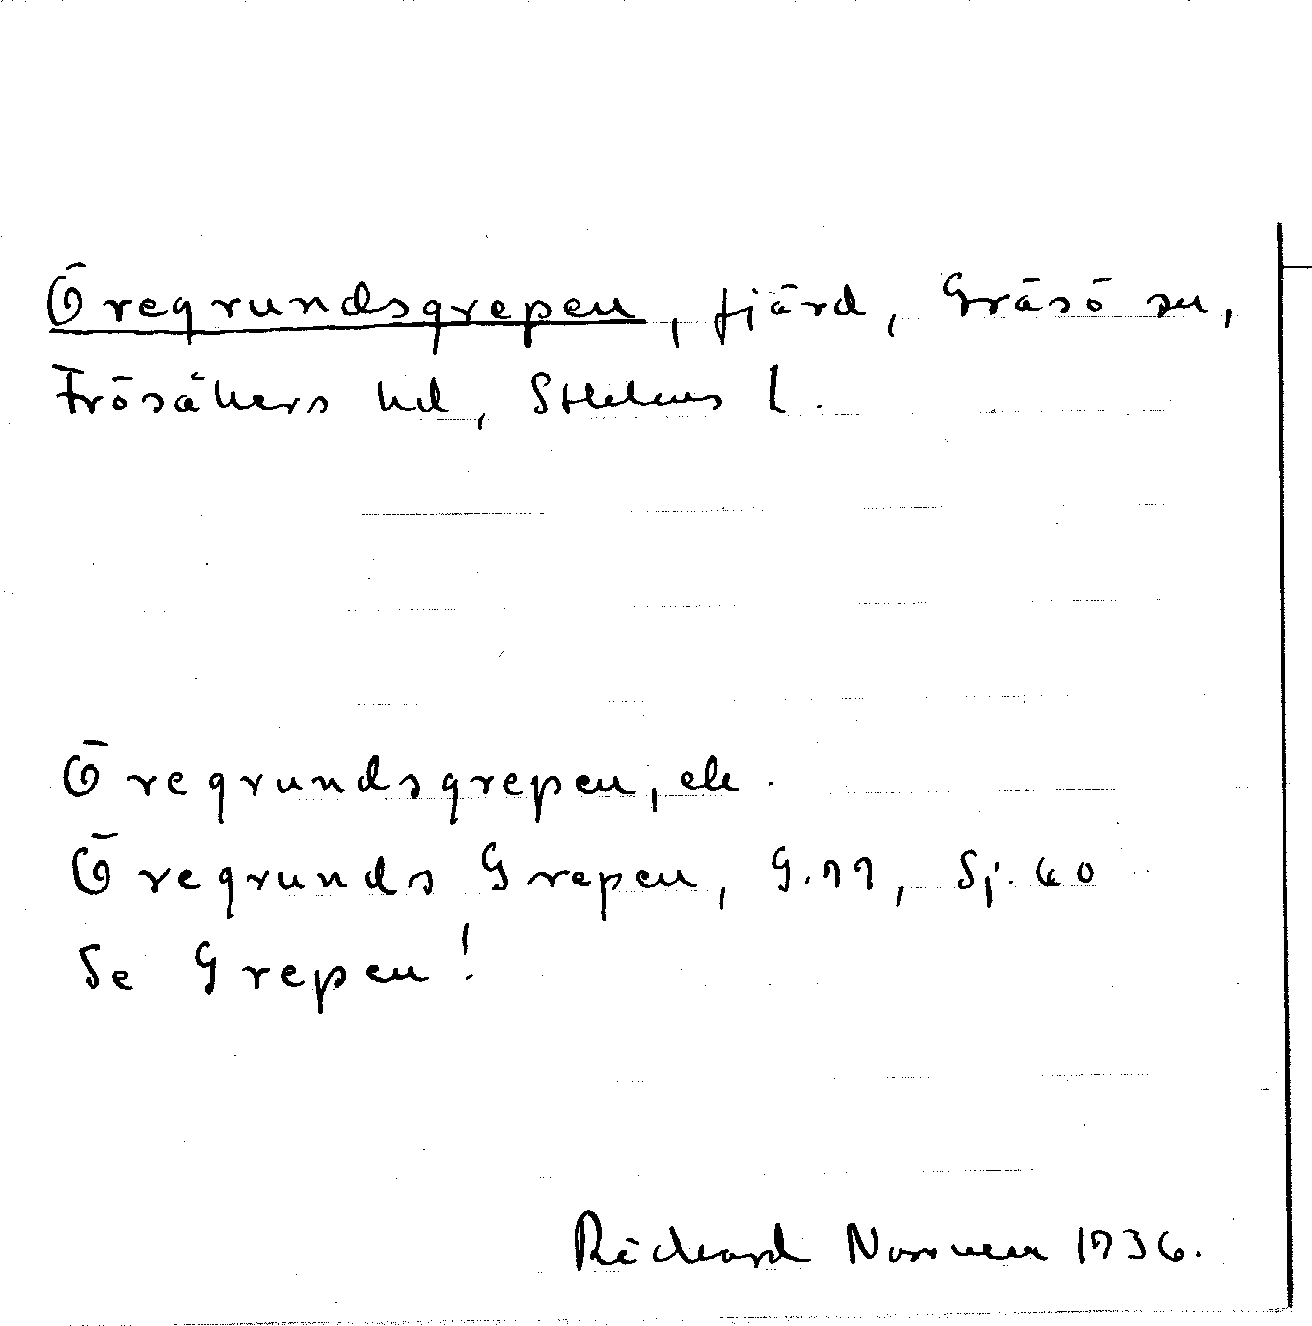 Öregrundsgrepen, fjärd, Gräsö sn,
Frösåkers hd, Sthlms l.
Öregrundsgrepen, ek.
Öregrunds Grepen, G.99, Sj. 60
Se Grepen!
Rickard Norrman 1936.